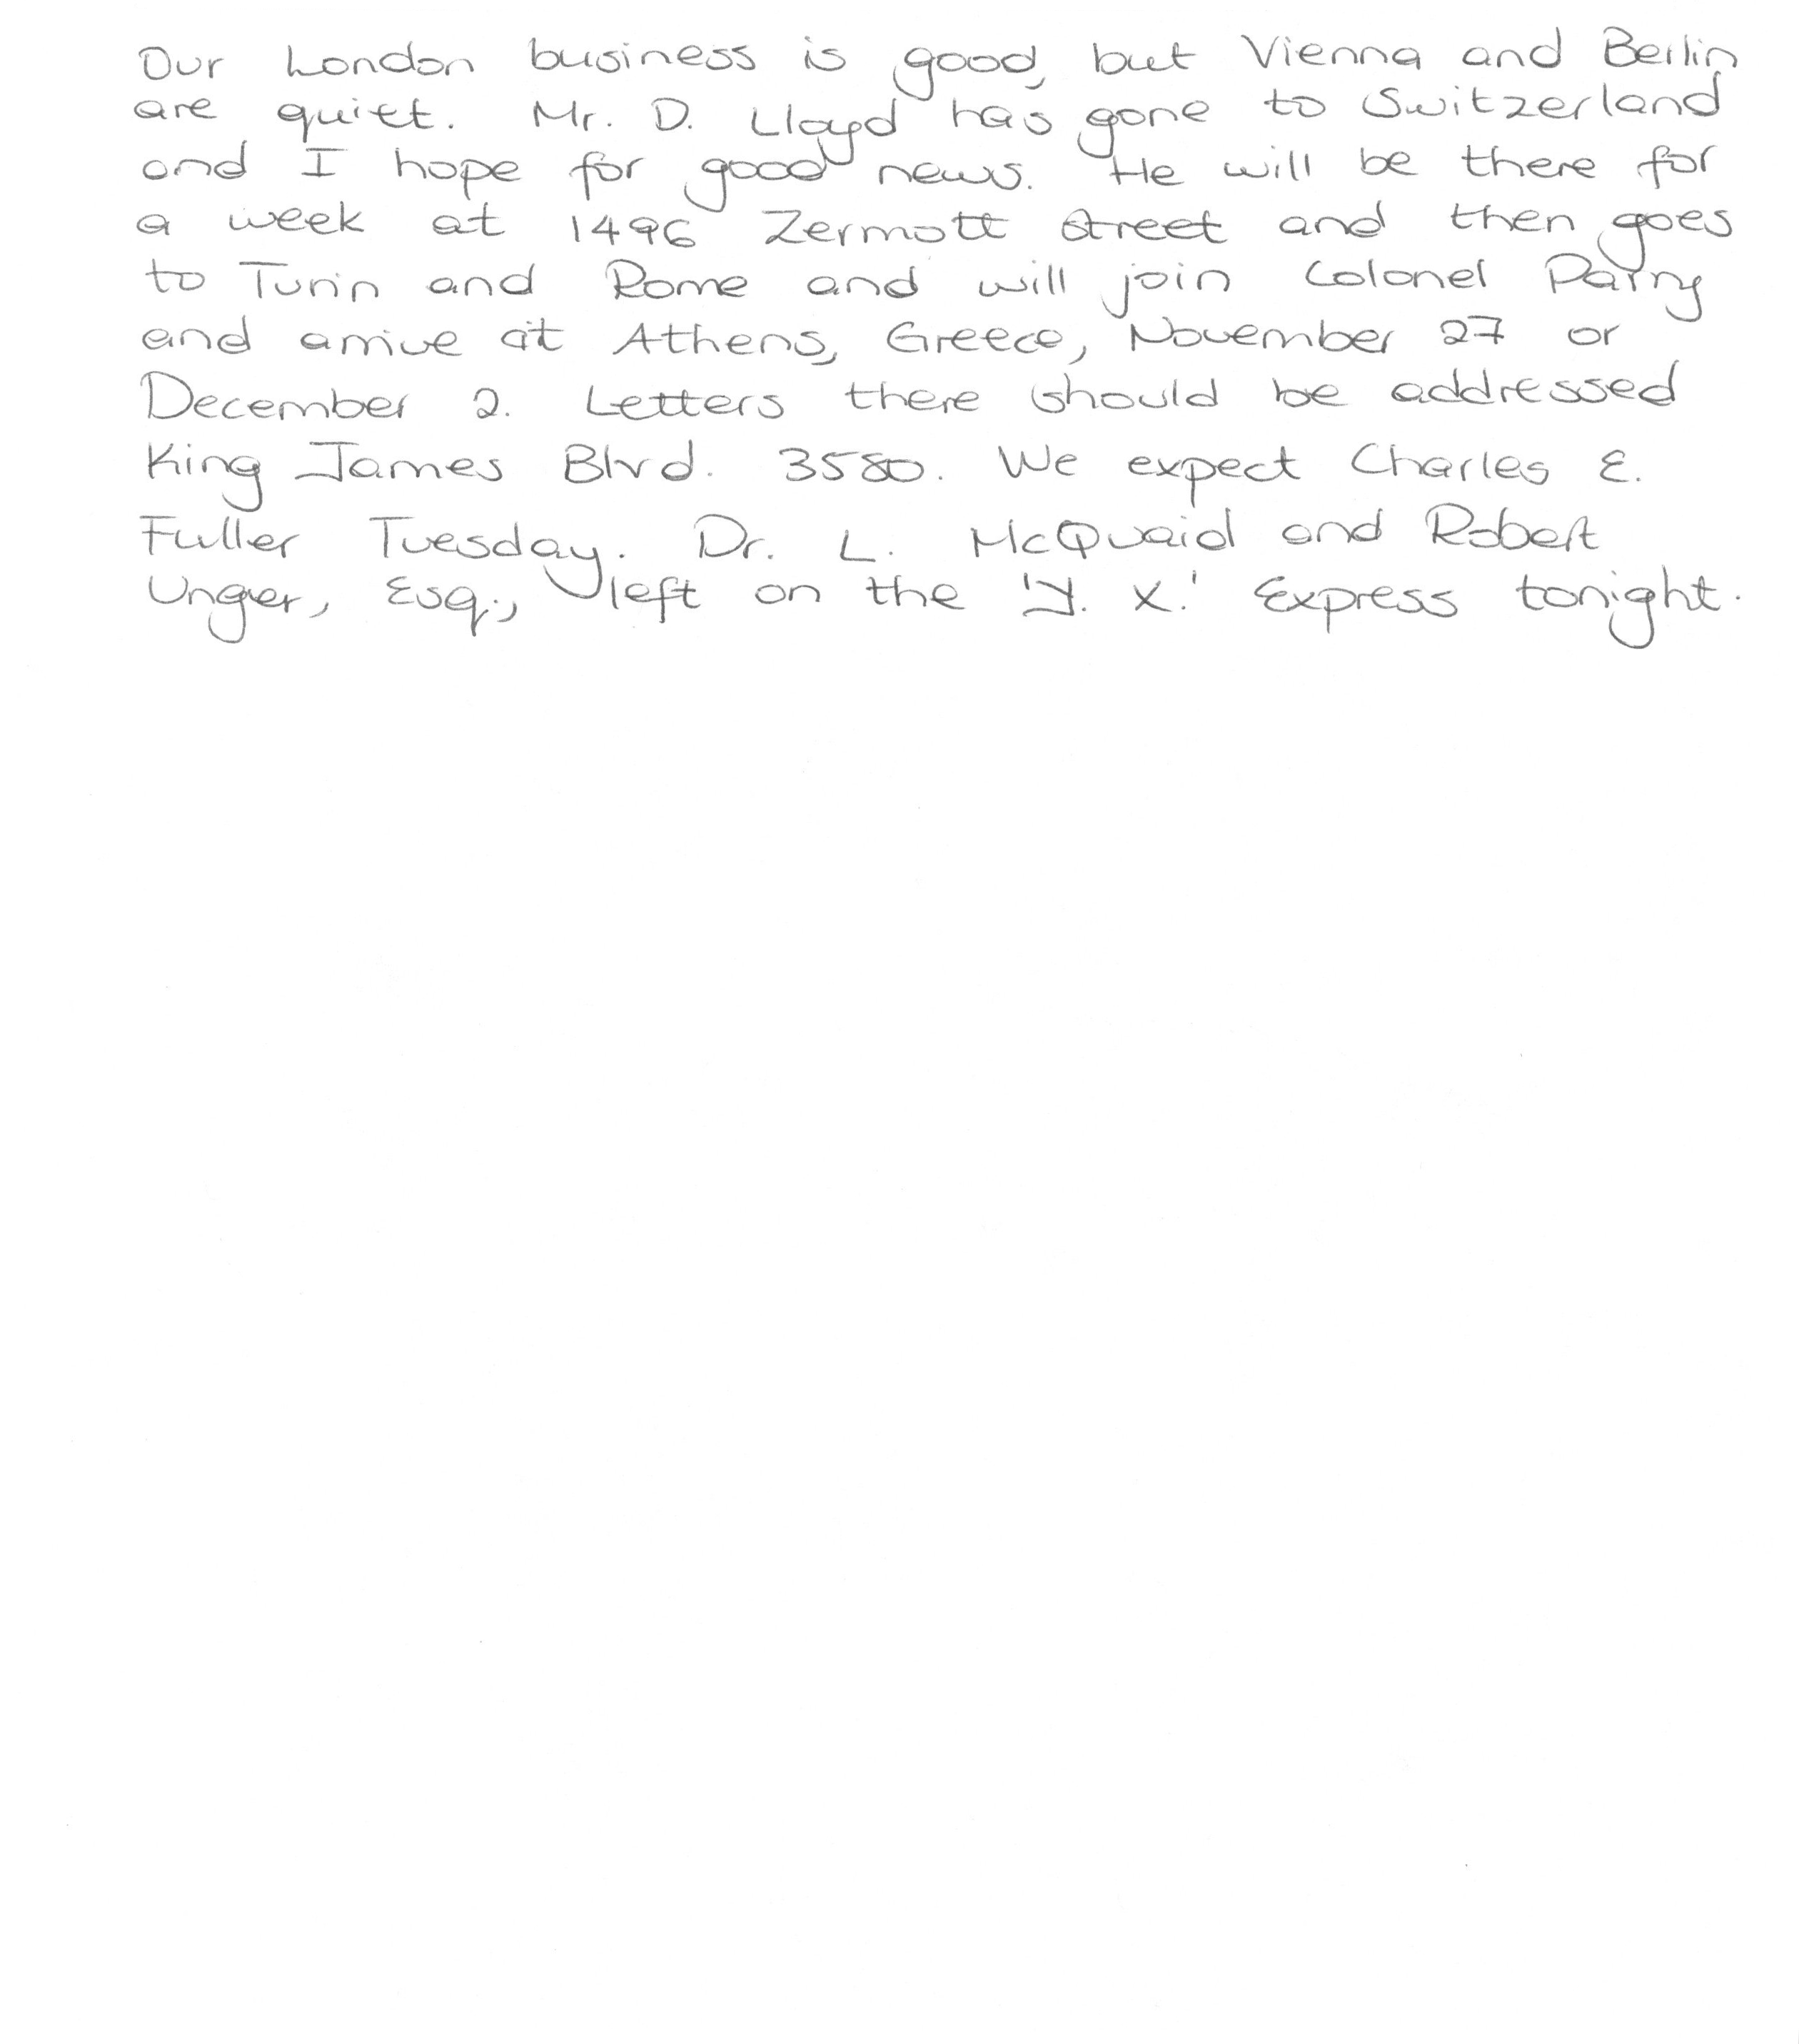 Our London business is good, but Vienna and Berlin
are quiet. Mr. D. Lloyd has gone to Switzerland
and I hope for good news. He will be there for
a week at 1496 Zermott street and then goes
to Turin and Rome and will join Colonel Parry
and arrive at Athens, Greece, November 27 or
December 2. Letters there should be addressed
King James Blvd. 3580. We expect Charles E.
Fuller Tuesday. Dr. L. McQuaid and Robert
Unger, Esq., left on the 'Y. X.' Express tonight.